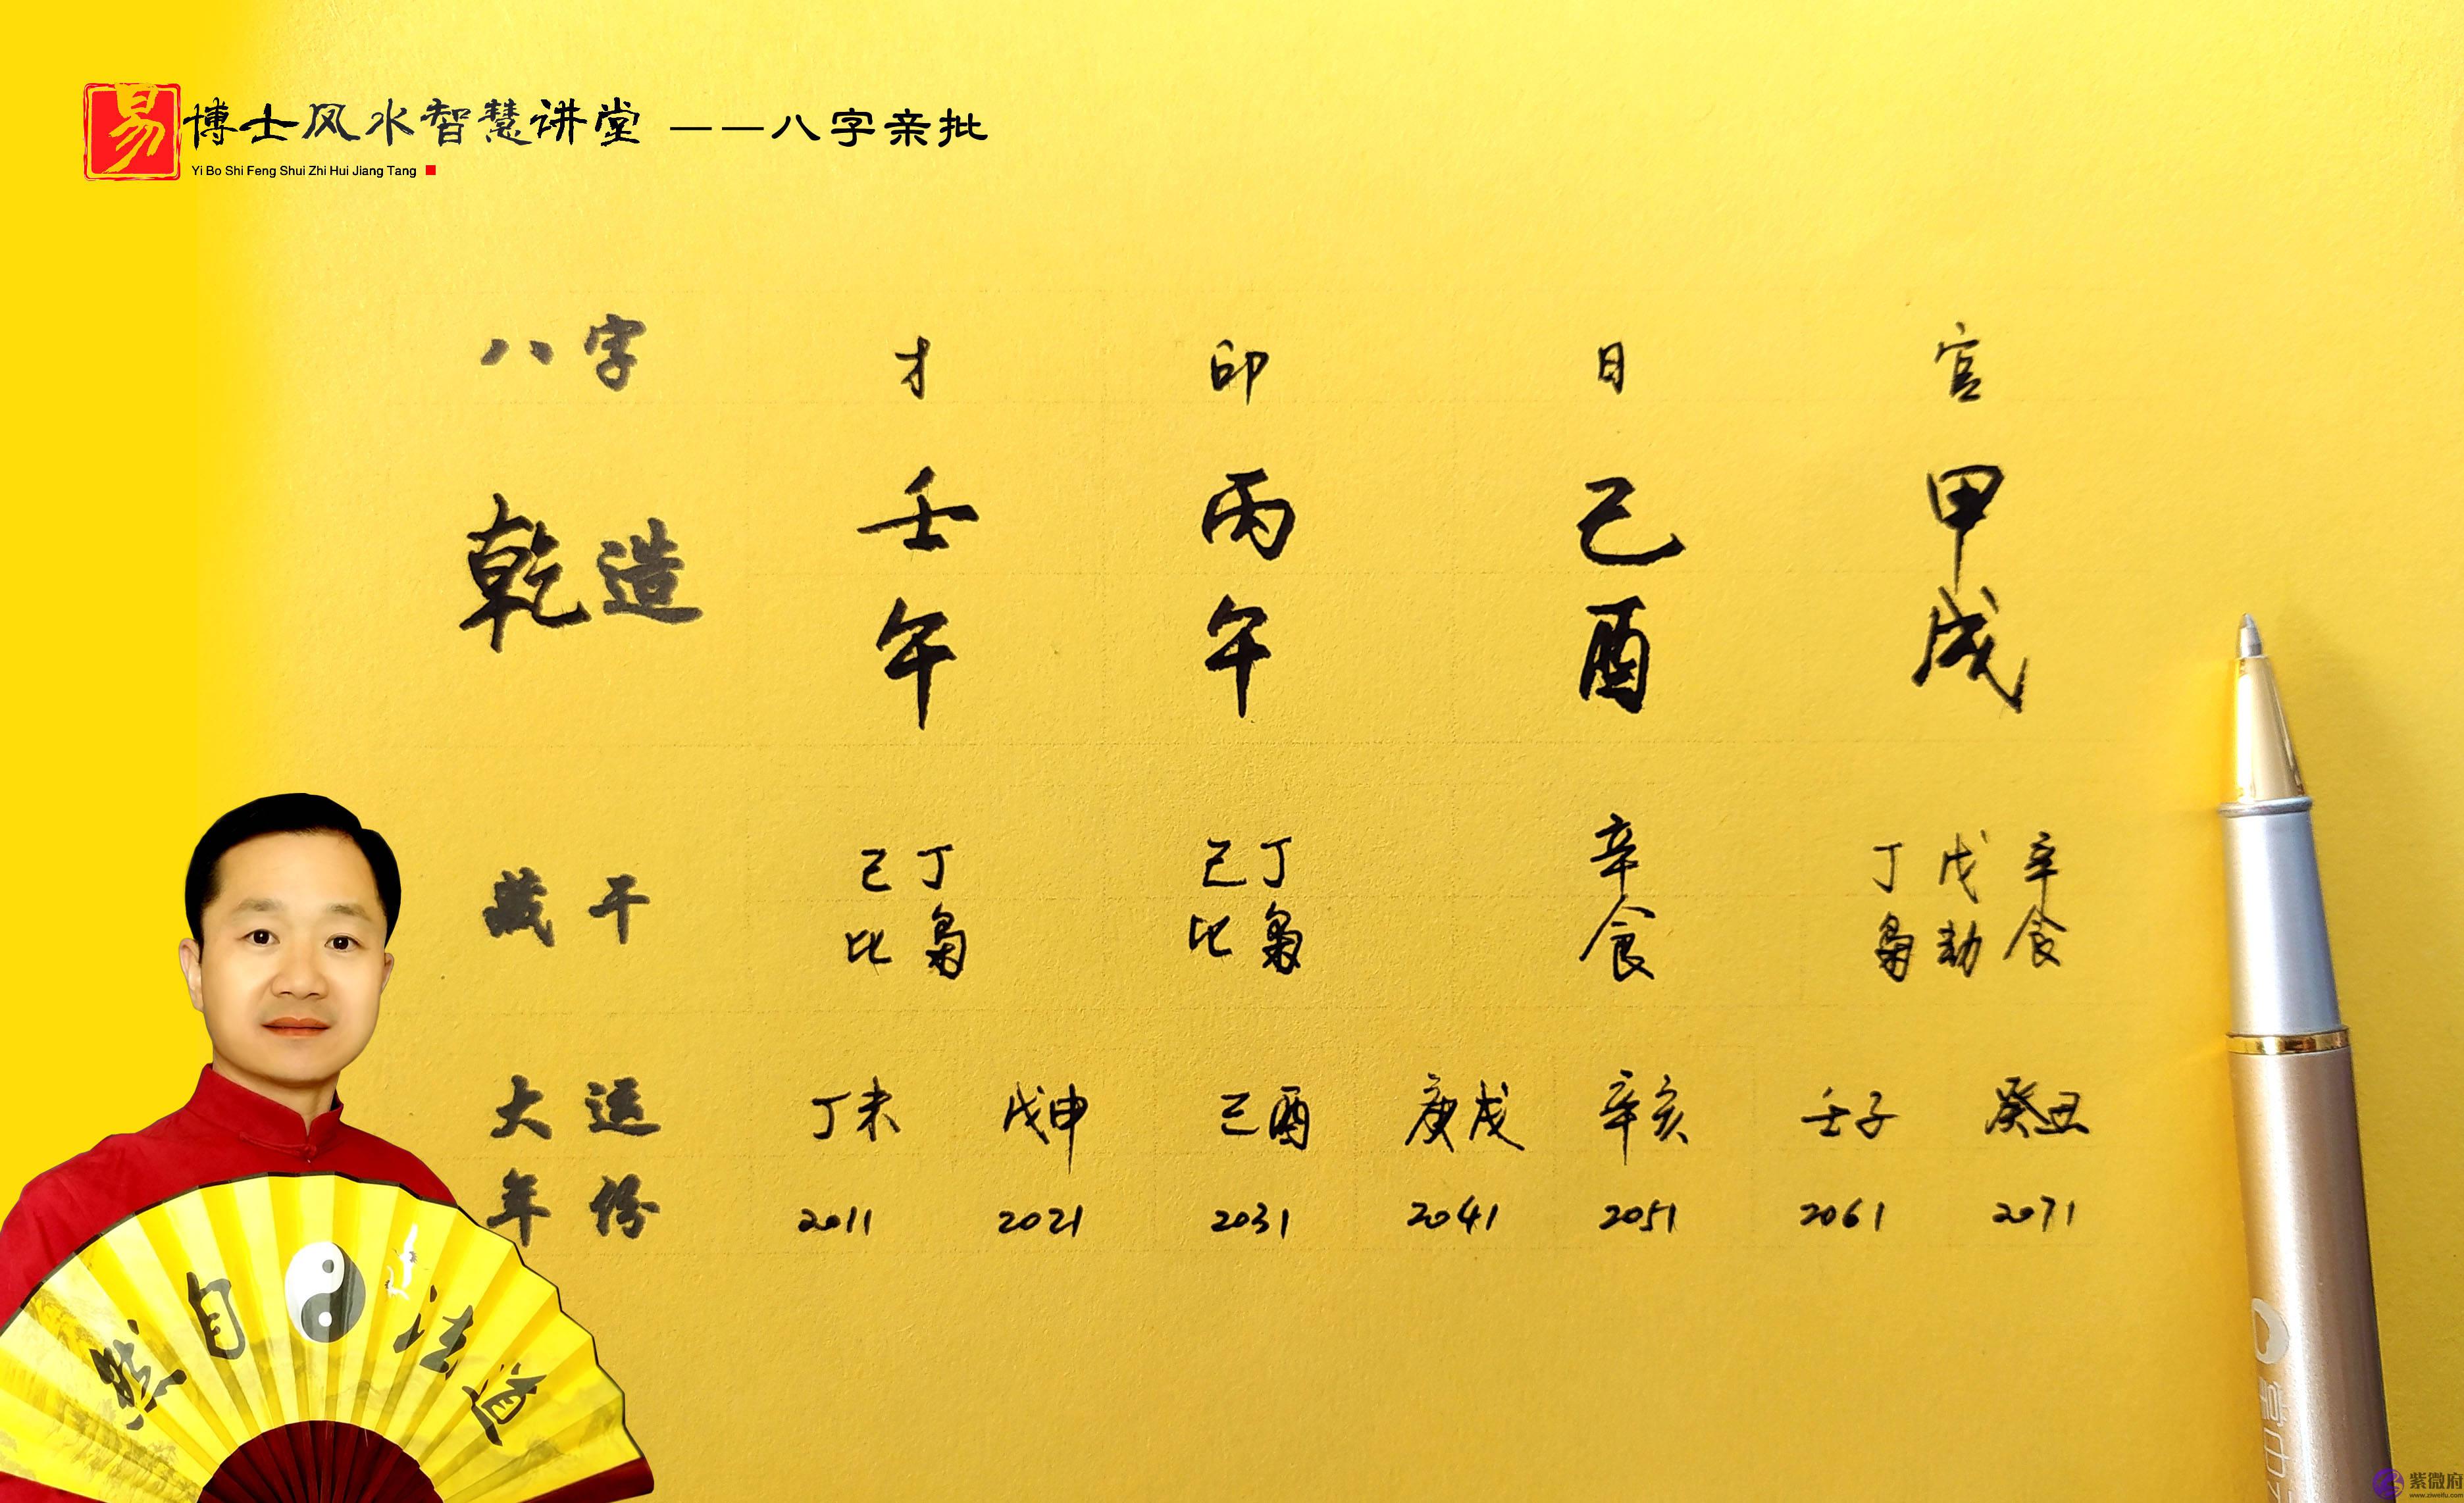 易博士风水智慧讲堂 ——八字亲批
Yi Bo Shi Feng Shui Zhi Hui Jiang Tang
八字 才 印 日 官
乾造 壬 丙 己 甲
午 午 酉 戌
藏干 己丁 己丁 辛 丁戊辛
比枭 比枭 食 枭劫食
大运 丁未 戊申 己酉 庚戌 辛亥 壬子 癸丑
年份 2011 2021 2031 2041 2051 2061 2071
然自法道
紫微府
www.ziweifu.com